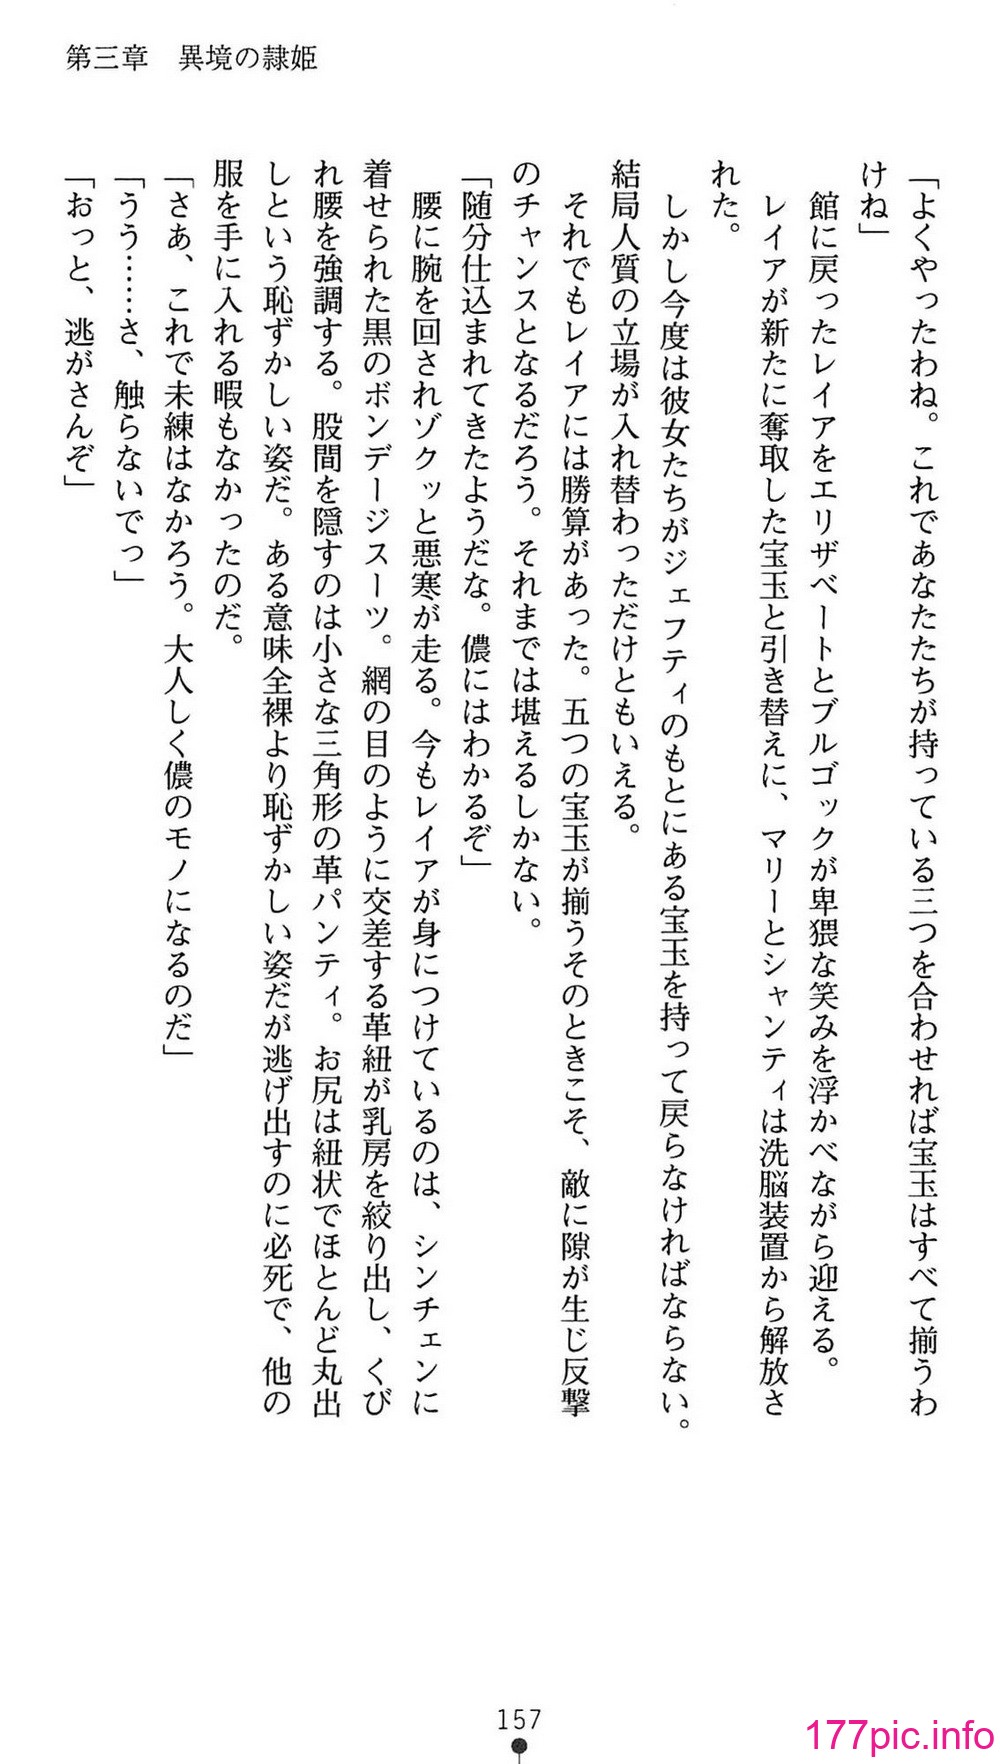 第三章　異境の隷姫
「よくやったわね。これであなたたちが持っている三つを合わせれば宝玉はすべて揃うわ
けね」
　館に戻ったレイアをエリザベートとブルゴックが卑猥な笑みを浮かべながら迎える。
　レイアが新たに奪取した宝玉と引き替えに、マリーとシャンティは洗脳装置から解放さ
れた。
　しかし今度は彼女たちがジェフティのもとにある宝玉を持って戻らなければならない。
結局人質の立場が入れ替わっただけともいえる。
　それでもレイアには勝算があった。五つの宝玉が揃うそのときこそ、敵に隙が生じ反撃
のチャンスとなるだろう。それまでは堪えるしかない。
「随分仕込まれてきたようだな。儂にはわかるぞ」
　腰に腕を回されゾクッと悪寒が走る。今もレイアが身につけているのは、シンチェンに
着せられた黒のボンデージスーツ。網の目のように交差する革紐が乳房を絞り出し、くび
れ腰を強調する。股間を隠すのは小さな三角形の革パンティ。お尻は紐状でほとんど丸出
しという恥ずかしい姿だ。ある意味全裸より恥ずかしい姿だが逃げ出すのに必死で、他の
服を手に入れる暇もなかったのだ。
「さあ、これで未練はなかろう。大人しく儂のモノになるのだ」
「うう……さ、触らないでっ」
「おっと、逃がさんぞ」
157
177pic.info